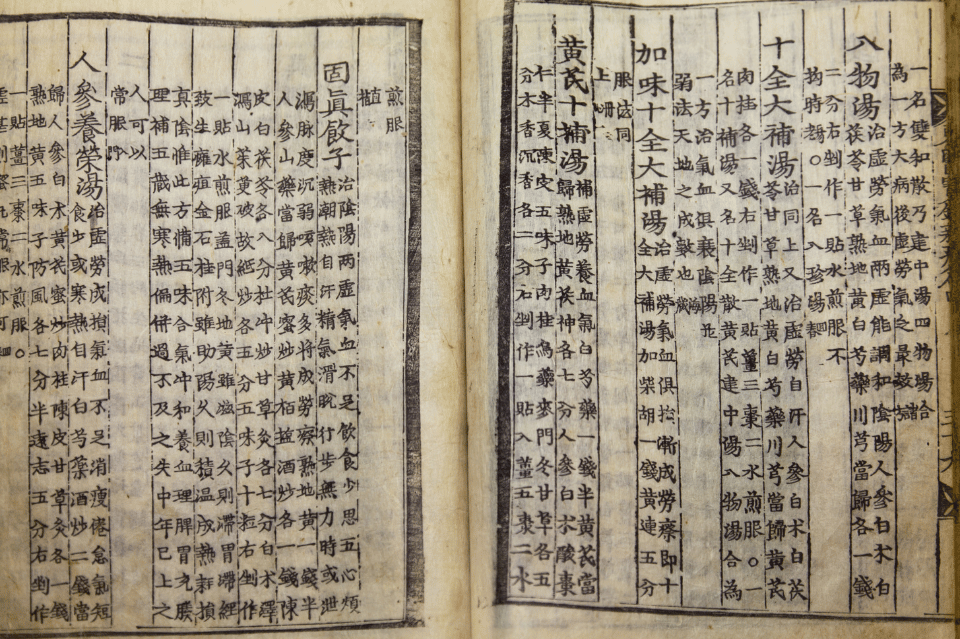 一名雙和散乃建中湯四物湯合
為一方大病後虛勞氣之最效
八物湯 治虛勞氣血兩虛能調和陰陽人參白朮白
茯苓甘草熟地黃白芍藥川芎當歸各一錢
二分右剉作一貼水煎服不
拘時○一名八珍湯
十全大補湯 治同上又治虛勞自汗人參白朮白茯
苓甘草熟地黃白芍藥川芎當歸黃芪
肉桂各一錢右剉作一貼薑三棗二水煎服○一
名十補湯又名十全散黃芪建中湯八物湯合為
一方治氣血俱衰陰陽並
弱法天地之成數也
加味十全大補湯 治虛勞氣血俱損漸成勞瘵即十
全大補湯加柴胡一錢黃連五分
服法同
上
黃芪十補湯 補虛勞養血氣白芍藥一錢半黃芪當
歸熟地黃茯神各七分人參白朮酸棗
仁半夏陳皮五味子肉桂烏藥麥門冬甘草各五
分木香沉香各二分右剉作一貼入薑五棗二水
煎服
固眞飮子 治陰陽兩虛氣血不足飮食少思五心煩
熱潮熱自汗精氣滑脫行步無力時或泄
瀉脉度沉弱嗽痰多將成勞瘵熟地黃一錢半
人參山藥當歸黃芪蜜炒黃栢鹽酒炒各一錢陳
皮白茯苓各八分杜冲炒甘草灸各七分白朮澤
瀉山茱萸破故紙炒各五分五味子十粒右剉作
一貼水煎服盖門冬地黃雖滋陰久則滯胃滯經
致生癰疽金石桂附雖助陽久則積溫成熱耗損
眞陰惟此方備五味合氣冲和養血理脾胃充腠
理補五藏無寒熱偏併過不及之失中年已上之
人可以
常服
人參養榮湯 治虛勞成損氣血不足消瘦倦怠氣短
食少或寒熱自汗白芍藥酒炒二錢當
歸人參白朮黃芪蜜炒肉桂陳皮甘草灸各一錢
熟地黃五味子防風各七分半遠志五分右剉作
一貼薑三棗二水煎服○